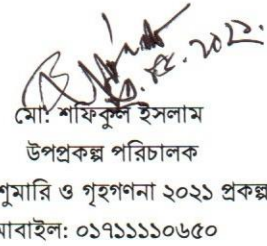 মো: শফিকুল ইসলাম
উপপ্রকল্প পরিচালক
শুমারি ও গৃহগণনা ২০২১ প্রকল্প
মোবাইল: ০১৭১১১১০৬৫০